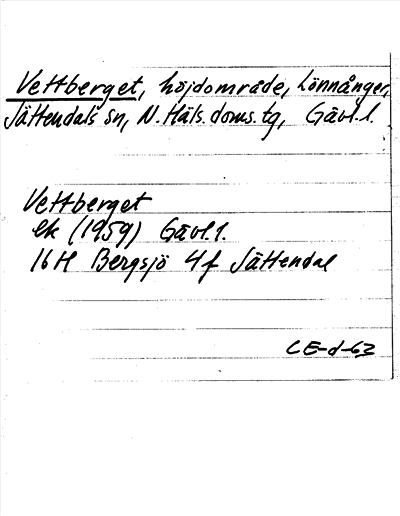 Vettberget, höjdområde, Lönnånger,
Jättendals sn, N. Häls. doms. tg, Gävl. l.
Vettberget
ek (1959) Gävl. l.
16H Bergsjö 4f Jättendal
CE-d-62